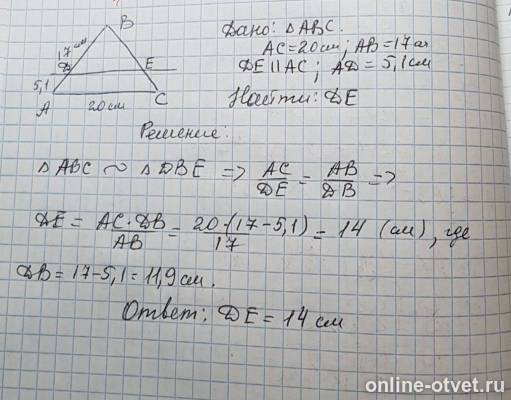 B
17 см
D
E
5,1
A
20см
C
Дано: △ABC.
AC=20см; AB=17см
DE||AC; AD=5,1см
Найти: DE
Решение:
△ABC ~ △DBE => AC/DE = AB/DB =>
DE = AC·DB/AB = 20·(17-5,1)/17 = 14 (см), где
DB=17-5,1=11,9см.
Ответ: DE=14см
online-otvet.ru